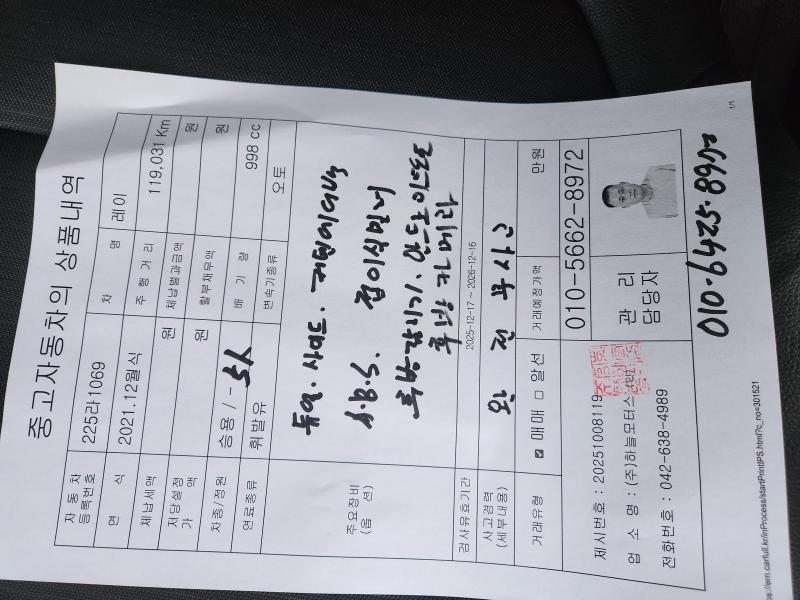 1/1
중고자동차의 상품내역
자동차 등록번호 225라1069 차 명 레이
연 식 2021.12월식 주 행 거 리 119,031 Km
체납세액 원 체납범과금액 원
저당설정 가 액 원 할부채무액 원
차종/정원 승용 / - 5人 배 기 량 998 cc
연료종류 휘발유 변속기종류 오토
주요장비 (옵 션) 듀얼. 사이드. 커텐에어백
A.B.S. 접이식밀러
후방감지기. 안드로이드
후방 카메라
검사유효기간 2025-12-17 ~ 2026-12-16
사고경력 (세부내용) 완전 무사고
거래유형 ☑ 매매 □ 알선 거래예정가액 만원
제시번호 : 20251008119
업 소 명 : (주)하늘모터스
전화번호 : 042-638-4989
관 리 담당자 010-5662-8972
010-6425-8972
ps://em.carfull.kr/inProcess/startPrintIPS.html?c_no=301521